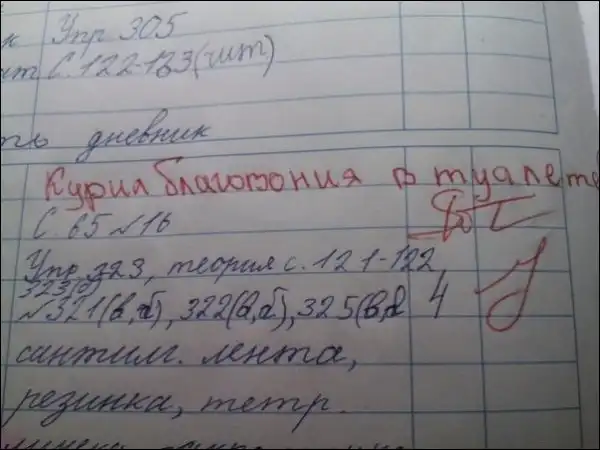 к Упр 305
С. 122-123 (чит)
ть дневник
Курил благовония в туалете
С. 65 №16
Упр 323, теория с. 121-122,
323(
№321(в,г), 322(в,г), 325(в, 4
сантим. лента,
резинка, тетр.